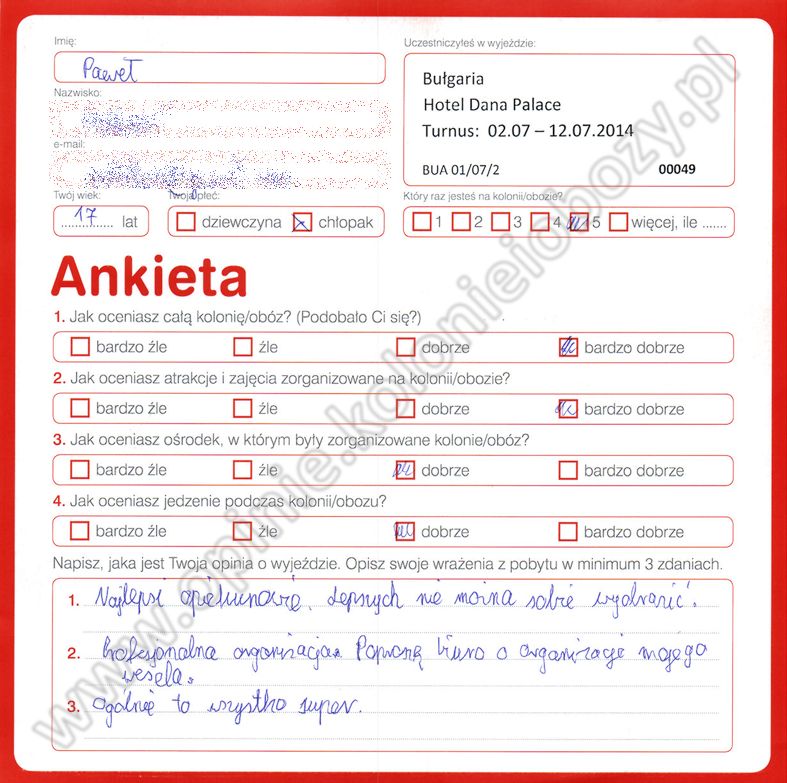 Imię:
Paweł
Uczestniczyłeś w wyjeździe:
Bułgaria
Hotel Dana Palace
Turnus: 02.07 – 12.07.2014
BUA 01/07/2 00049
Nazwisko:
e-mail:
Twój wiek:
17 lat
Twoja płeć:
dziewczyna chłopak
Który raz jesteś na kolonii/obozie?
1 2 3 4 5 więcej, ile .......
Ankieta
1. Jak oceniasz całą kolonię/obóz? (Podobało Ci się?)
bardzo źle źle dobrze bardzo dobrze
2. Jak oceniasz atrakcje i zajęcia zorganizowane na kolonii/obozie?
bardzo źle źle dobrze bardzo dobrze
3. Jak oceniasz ośrodek, w którym były zorganizowane kolonie/obóz?
bardzo źle źle dobrze bardzo dobrze
4. Jak oceniasz jedzenie podczas kolonii/obozu?
bardzo źle źle dobrze bardzo dobrze
Napisz, jaka jest Twoja opinia o wyjeździe. Opisz swoje wrażenia z pobytu w minimum 3 zdaniach.
1. Najlepsi opiekunowie. Lepszych nie można sobie wyobrazić.
2. Profesjonalna organizacja. Poproszę biuro o organizację mojego
wesela.
3. Ogólnie to wszystko super.
www.opinie.kolonieiobozy.pl